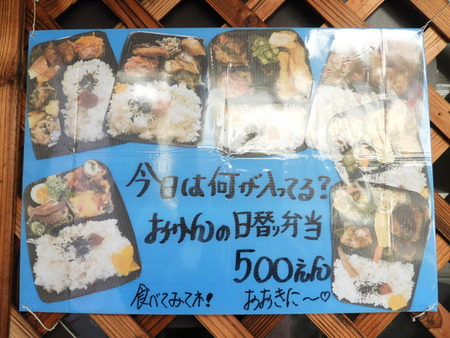 今日は何が入ってる？
おかんの日替り弁当
500えん
食べてみてネ！ おおきに〜♡